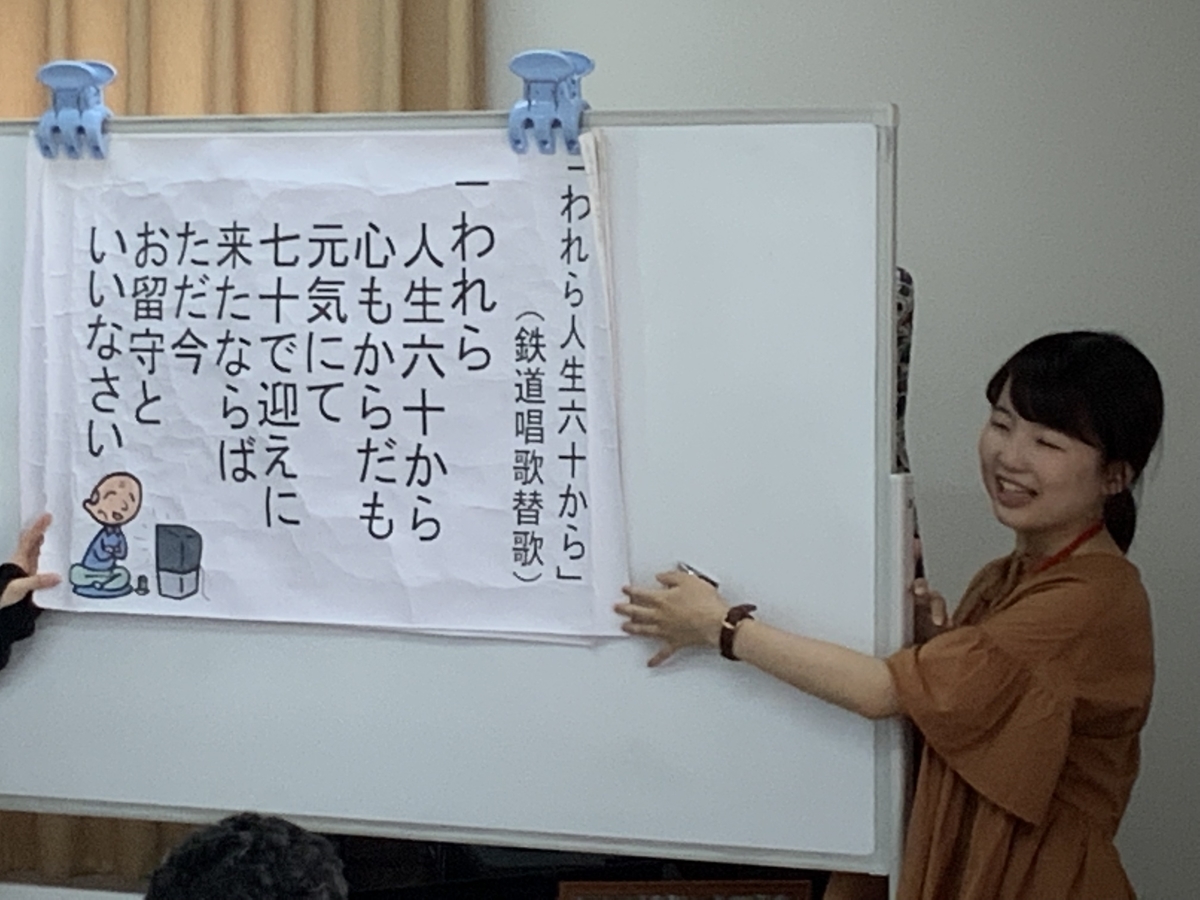 「われら人生六十から」
（鉄道唱歌替歌）
一われら
人生六十から
心もからだも
元気にて
七十で迎えに
来たならば
ただ今
お留守と
いいなさい